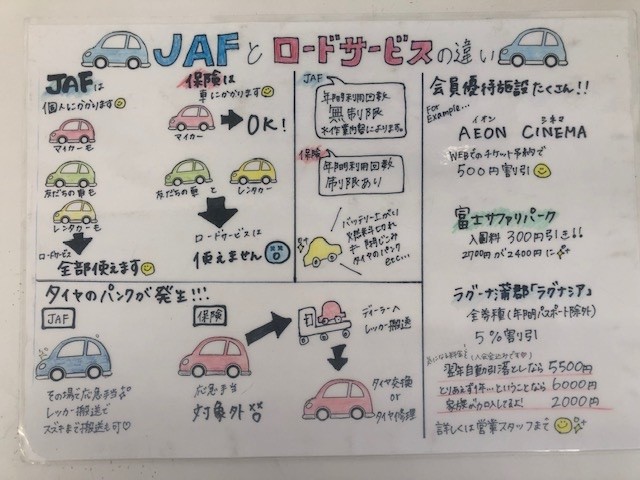 JAFとロードサービスの違い
JAFは
個人にかかります
マイカーも
友だちの車も
レンタカーも
ロードサービス
全部使えます
保険は
車にかかります
マイカー
OK!
友だちの車と
レンタカー
ロードサービスは
使えません
JAF
年間利用回数
無制限
※作業内容によります。
保険
年間利用回数
制限あり
バッテリー上がり
燃料切れ
キー閉じこみ
タイヤのパンク
etc...
会員優待施設たくさん!!
For Example...
イオン シネマ
AEON CINEMA
WEBでのチケット予約で
500円割引
富士サファリパーク
入園料 300円引き!!
2700円が2400円に
ラグーナ蒲郡「ラグナシア」
全券種(年間パスポート除外)
5%割引
翌年自動引落としなら 5500円
とりあえず1年...ということなら 6000円
家族が加入してるよ! 2000円
詳しくは営業スタッフまで
タイヤのパンクが発生!!!
JAF
その場で応急手当
レッカー搬送で
スズキまで搬送も可♡
保険
応急手当
対象外
ディーラーへ
レッカー搬送
タイヤ交換
or
タイヤ修理